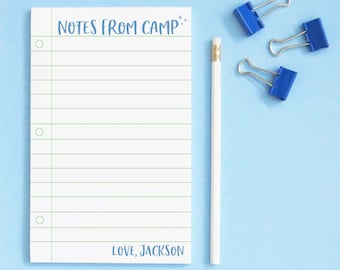 NOTES FROM CAMP
LOVE, JACKSON